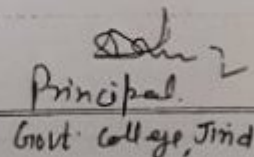 Principal.
Govt. College, Jind